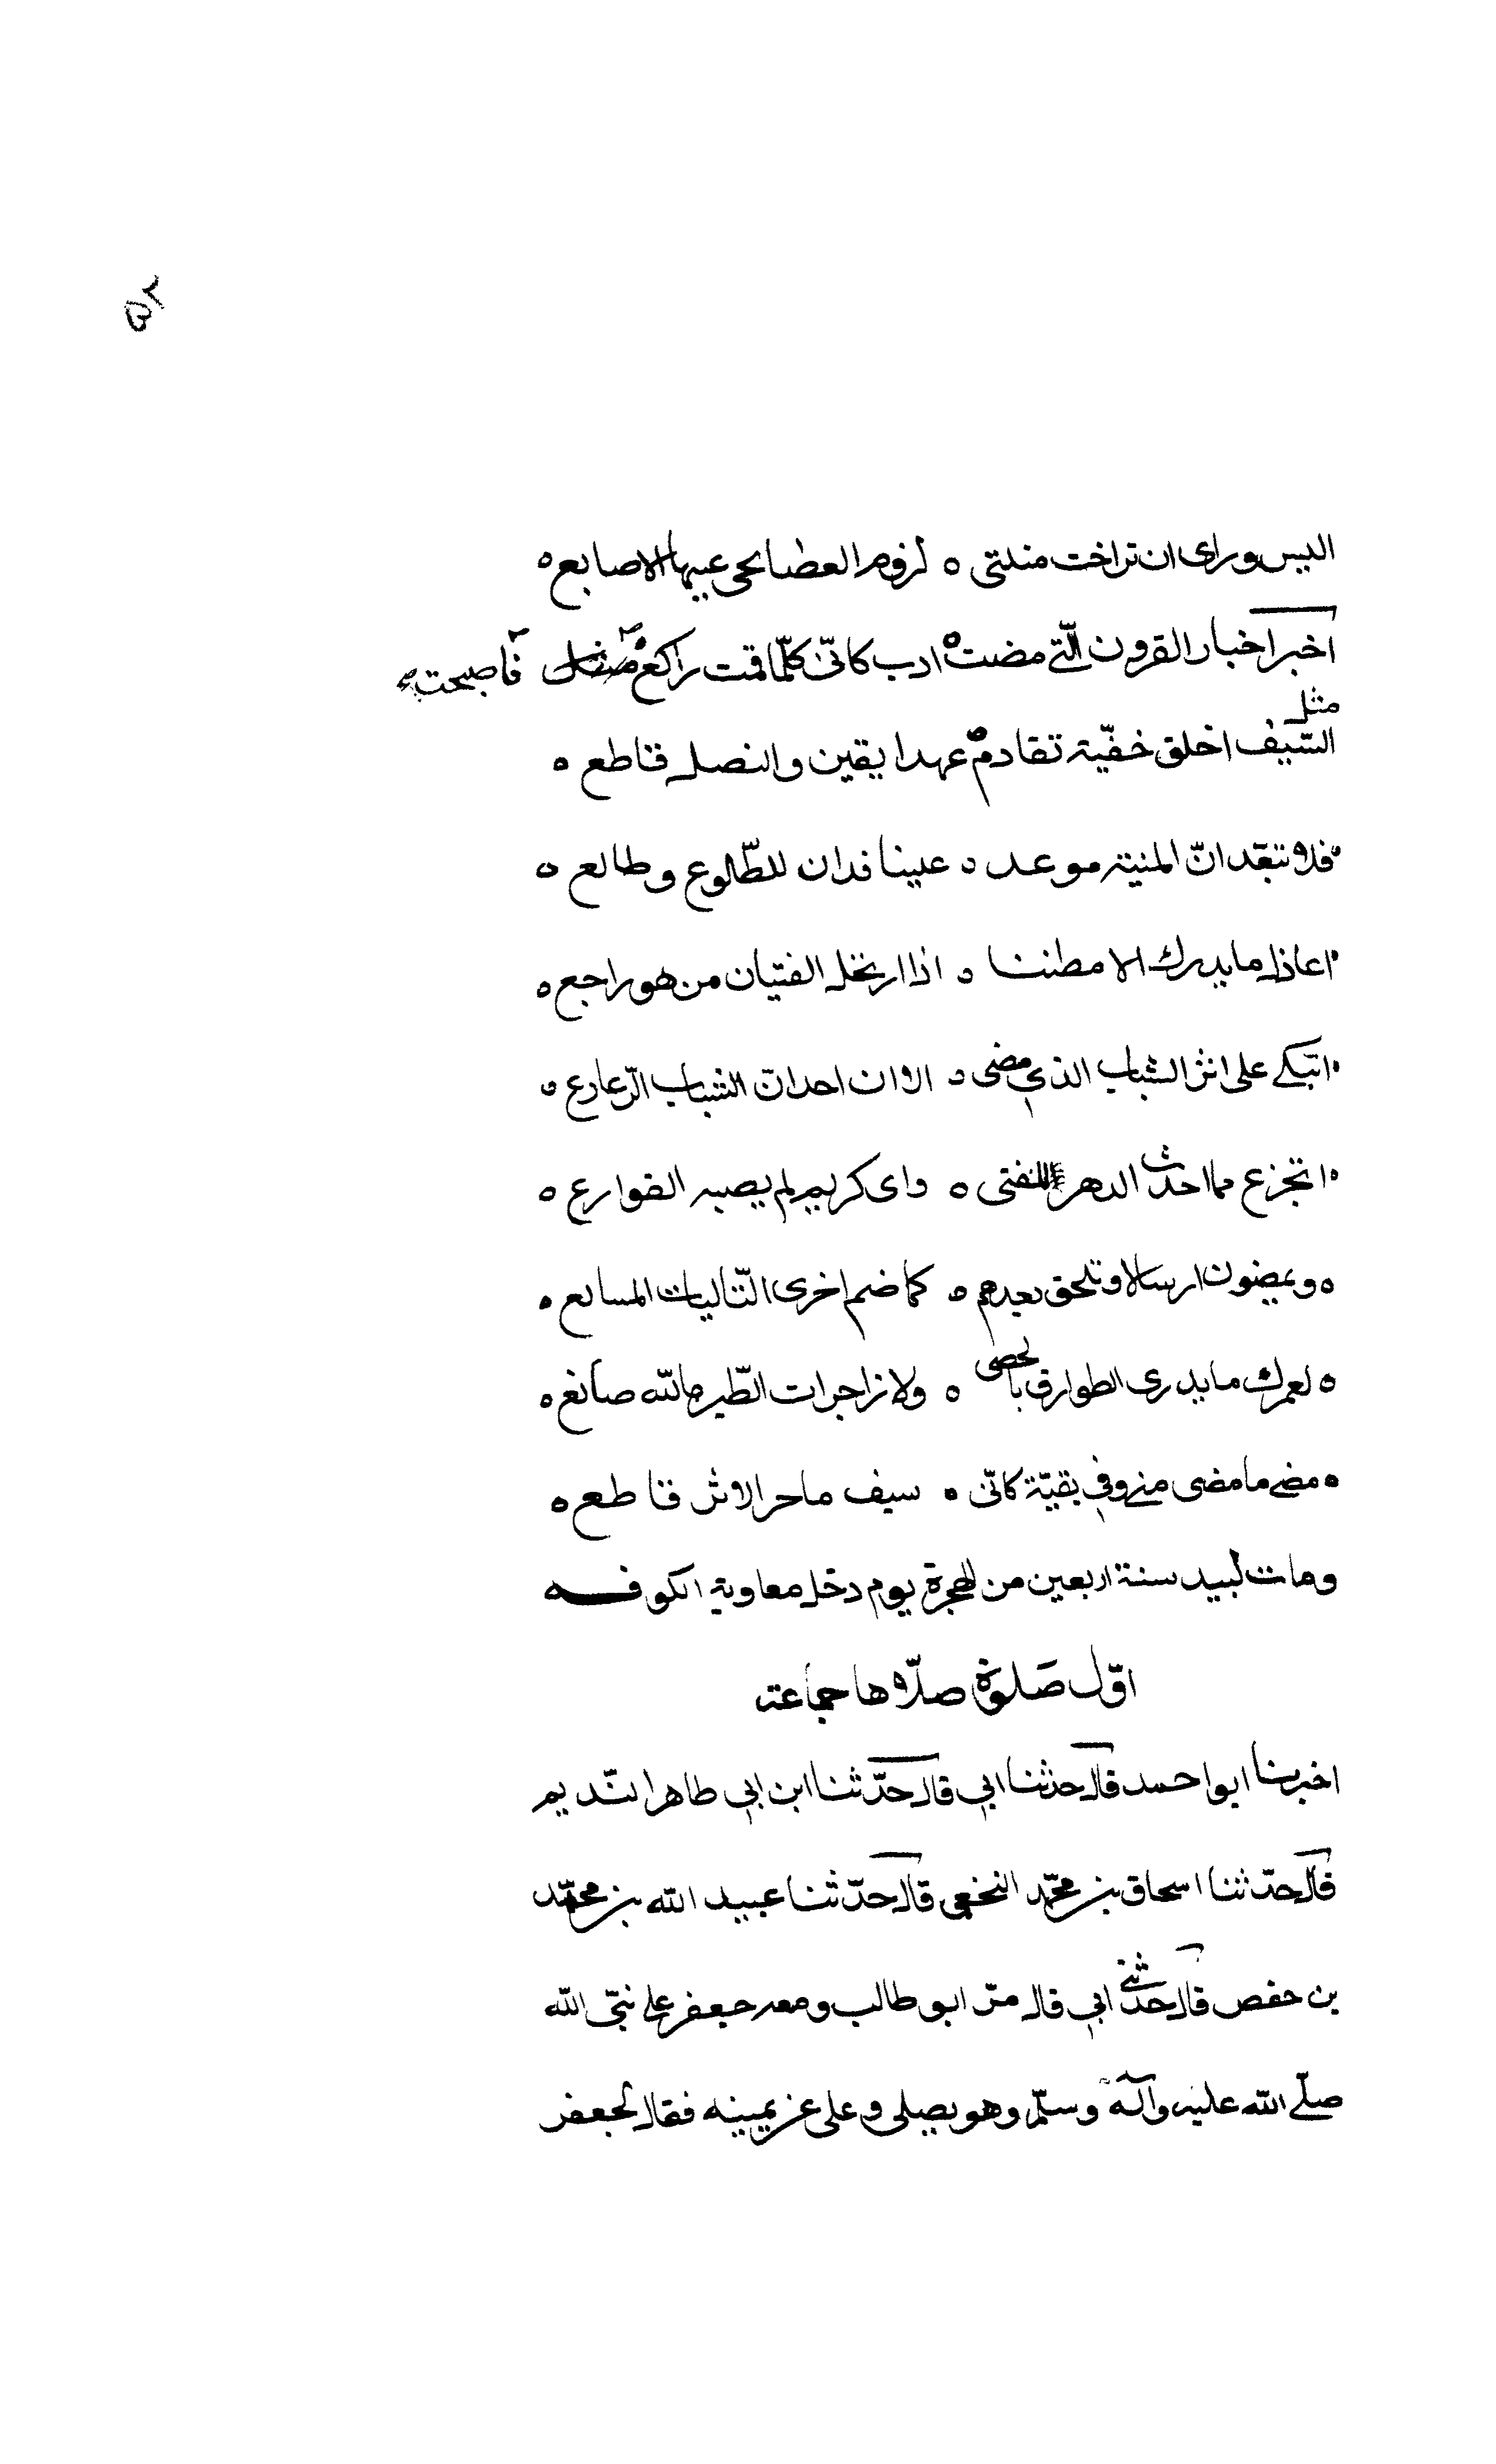 ٥٢
اليس وراى ان تراخت منيتى ه لزوم العصا يحى عيها الاصابع ه
اخبر اخبار القرون الّتى مضت ه ادب كانّى كلّما قمت راكع ه فاصبحت
مثل
السّيف اخلق خفّية تقادم عهد ايقين والنصل قاطع ه
فلا تبعّد انّ المنية موعد ه علينا فدان للطّالوع وطالع ه
اعاذل ما يدرك الا مطننا ه اذا ارتحل الفتيان من هو راجع ه
اتبكى على اثر الشباب الذي مضى ه الا ان احدان الشباب الرّعارع ه
اتجزع مما احدث الدهر للفتى ه واى كريم لم يصبه القوارع ه
ه ويمضون ارسالا وتلحق بعدهم ه كما ضم اخرى التّاليات المسايع ه
ه لعمرك ما يدرى الطوارق بالحصى ه ولا زاجرات الطّير ما الله صانع ه
ه مضى ما مضى منى وفي بقيّة كانّى ه سيف ماحر الاثر قاطع ه
ومات لبيد سنة اربعين من الهجرة يوم دخل معاوية الكوفه
اوّل صَلوة صلّاها جماعة
اخبرنا ابو احمد قال حدثنا ابي قال حدّثنا ابن ابي طاهر النّديم
قال حدّثنا اسحاق بن محمّد النخعى قال حدّثنا عبيد الله بن محمّد
بن حفص قال حدثنى ابي قال مرّ ابو طالب ومعه جعفر على نبىّ الله
صلّى الله عليه وآله وسلّم وهو يصلى وعلى عن يمينه فقال لجعفر